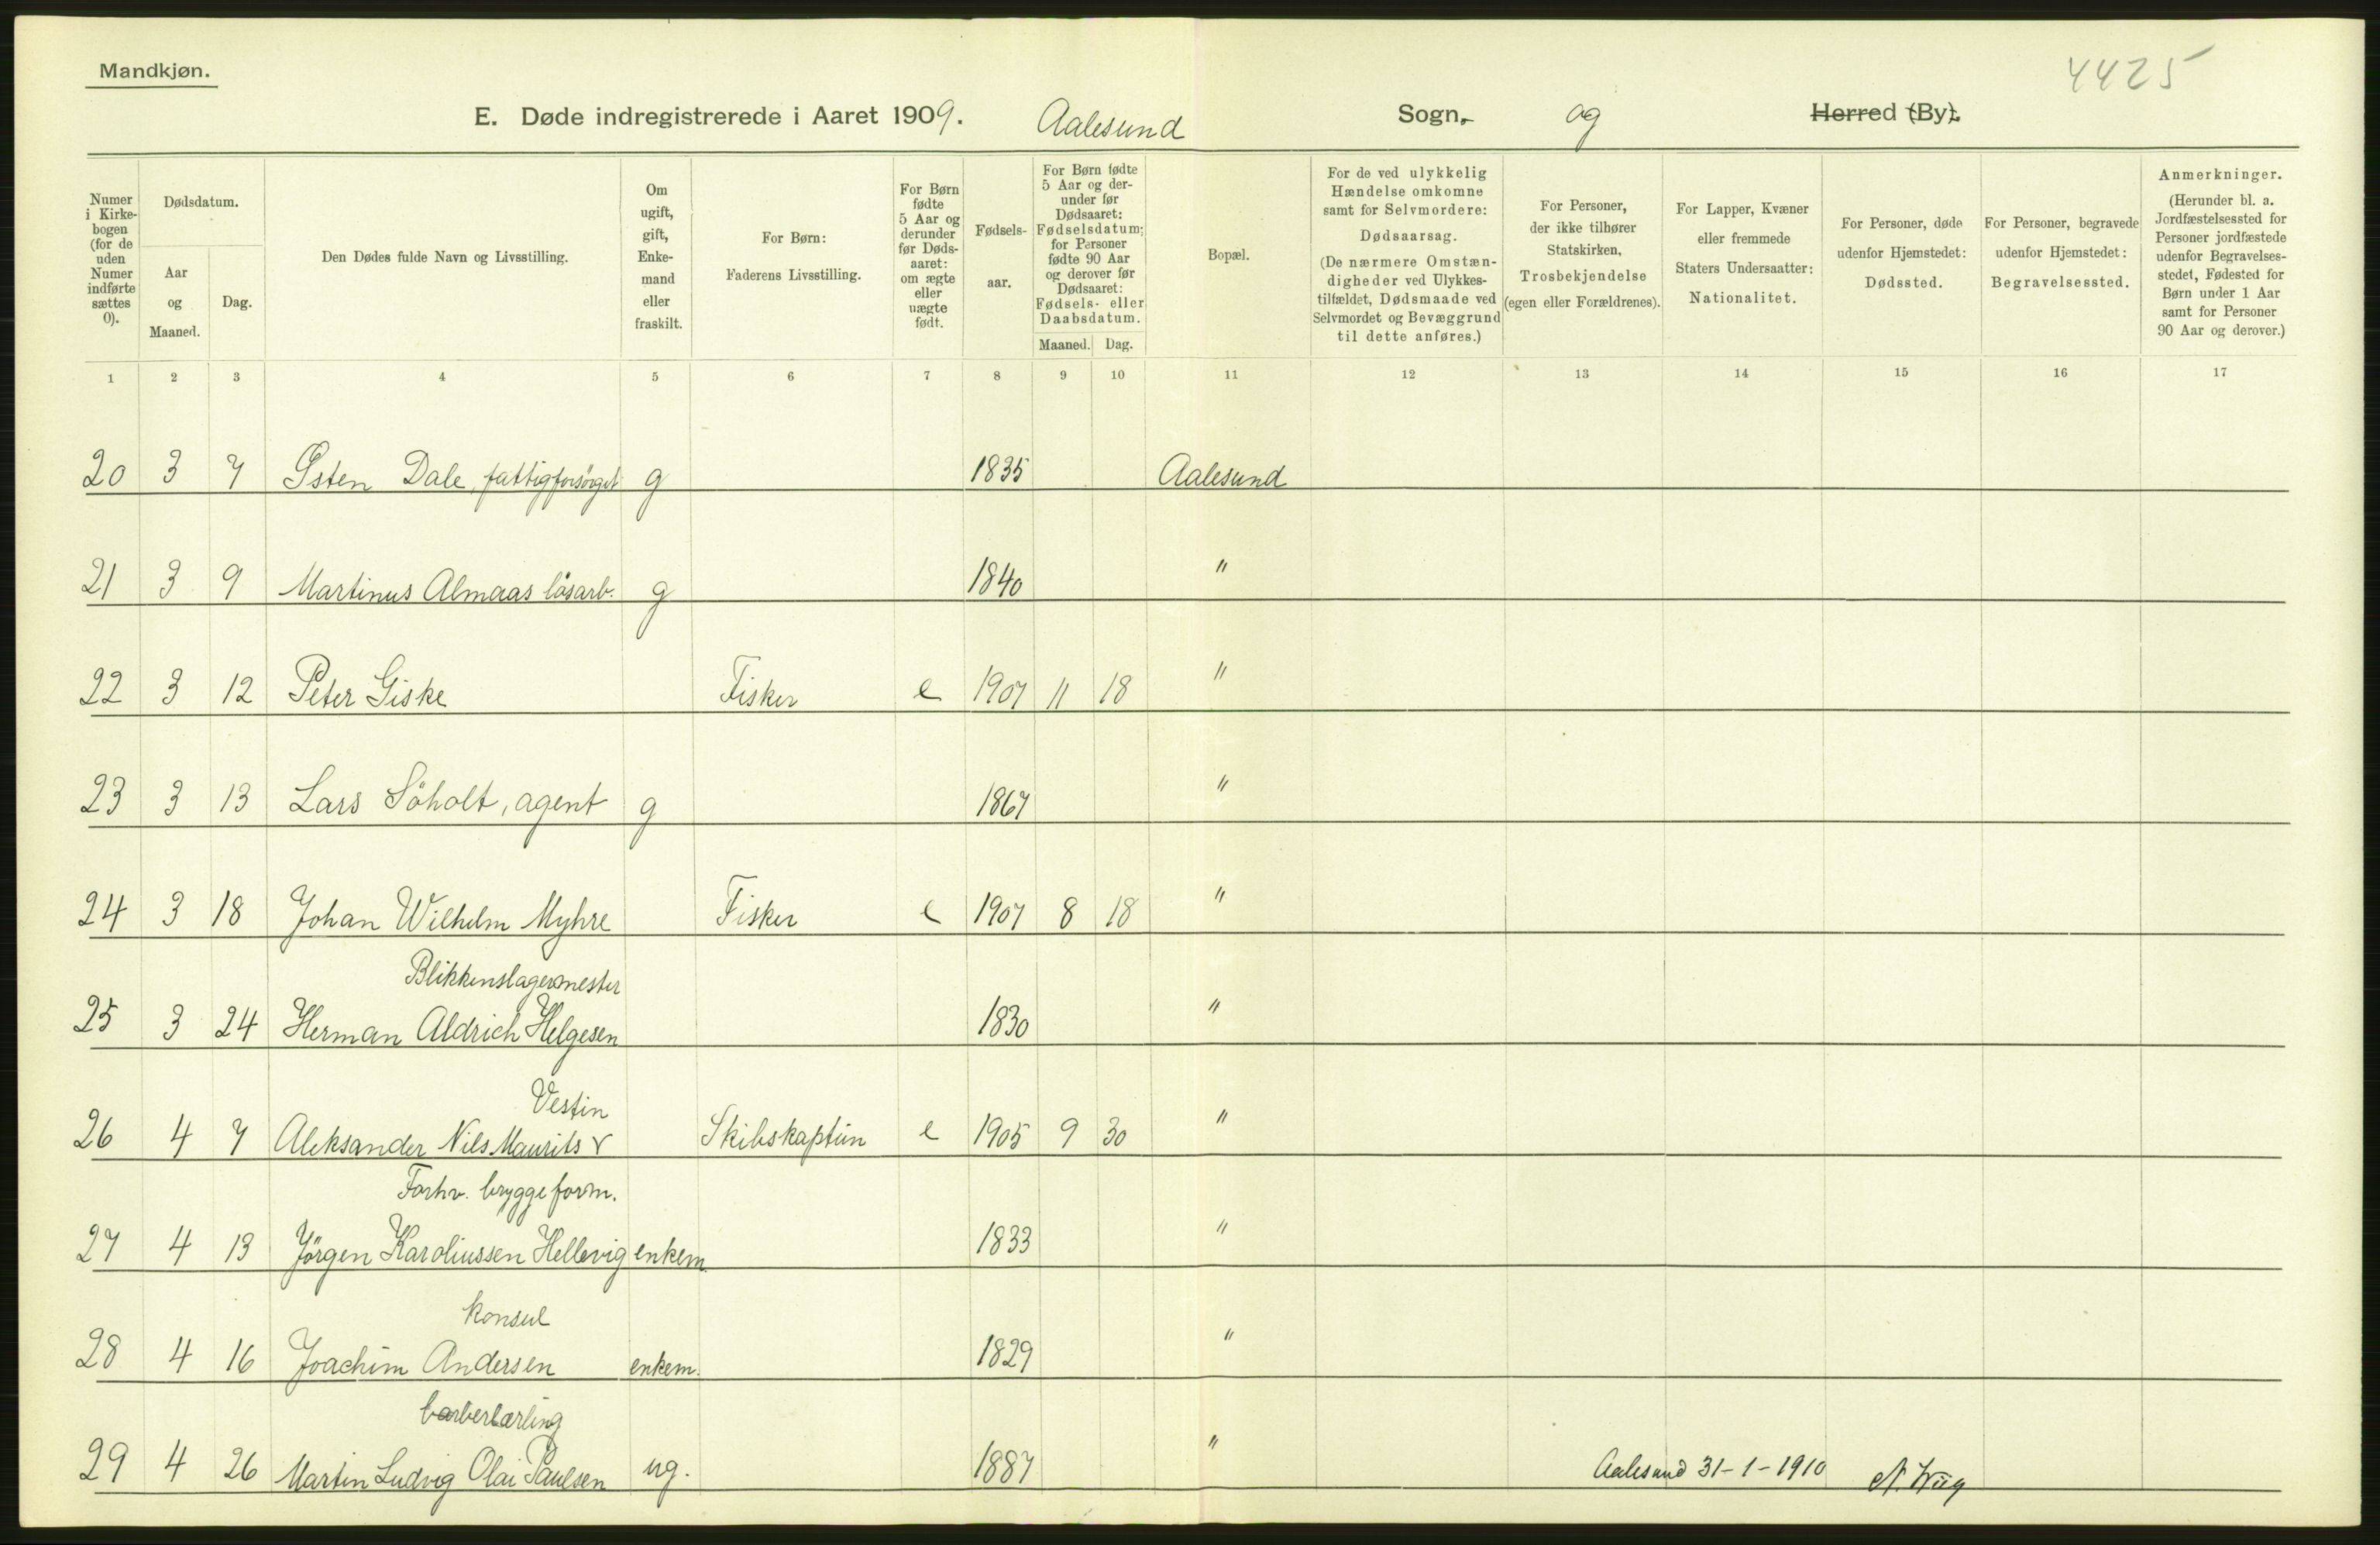 Mandkjøn.
4425
E. Døde indregistrerede i Aaret 1909. Aalesund Sogn, og Herred (By).
Numer i Kirkebogen (for de uden Numer indførte sættes 0).
Dødsdatum.
Aar og Maaned.
Dag.
Den Dødes fulde Navn og Livsstilling.
Om ugift, gift, Enkemand eller fraskilt.
For Børn: Faderens Livsstilling.
For Børn fødte 5 Aar og derunder før Dødsaaret: om ægte eller uægte født.
Fødselsaar.
For Børn fødte 5 Aar og derunder før Dødsaaret: Fødselsdatum; for Personer fødte 90 Aar og derover før Dødsaaret: Fødsels- eller Daabsdatum.
Maaned. Dag.
Bopæl.
For de ved ulykkelig Hændelse omkomne samt for Selvmordere: Dødsaarsag. (De nærmere Omstændigheder ved Ulykkestilfældet, Dødsmaade ved Selvmordet og Bevæggrund til dette anføres.)
For Personer, der ikke tilhører Statskirken, Trosbekjendelse (egen eller Forældrenes).
For Lapper, Kvæner eller fremmede Staters Undersaatter: Nationalitet.
For Personer, døde udenfor Hjemstedet: Dødssted.
For Personer, begravede udenfor Hjemstedet: Begravelsessted.
Anmerkninger. (Herunder bl. a. Jordfæstelsessted for Personer jordfæstede udenfor Begravelsesstedet, Fødested for Børn under 1 Aar samt for Personer 90 Aar og derover.)
1 2 3 4 5 6 7 8 9 10 11 12 13 14 15 16 17
20 3 7 Østen Dale, fattigforsörget g 1835 Aalesund
21 3 9 Martinus Almaas lösarb. g 1840 "
22 3 12 Peter Giske Fisker e 1907 11 18 "
23 3 13 Lars Söholt, agent g 1867 "
24 3 18 Johan Wilhelm Myhre Fisker e 1907 8 18 "
Blikkenslagermester
25 3 24 Herman Aldrich Helgesen 1830 "
Vestin
26 4 7 Aleksander Nils Maurits v Skibskaptein e 1905 9 30 "
Forhv. bryggeform.
27 4 13 Jörgen Karoliussen Hellevig enkem. 1833 "
konsul
28 4 16 Joachim Andersen enkem. 1829 "
barberlærling
29 4 26 Martin Ludvig Olai Paulsen ug. 1887 "
Aalesund 31-1-1910